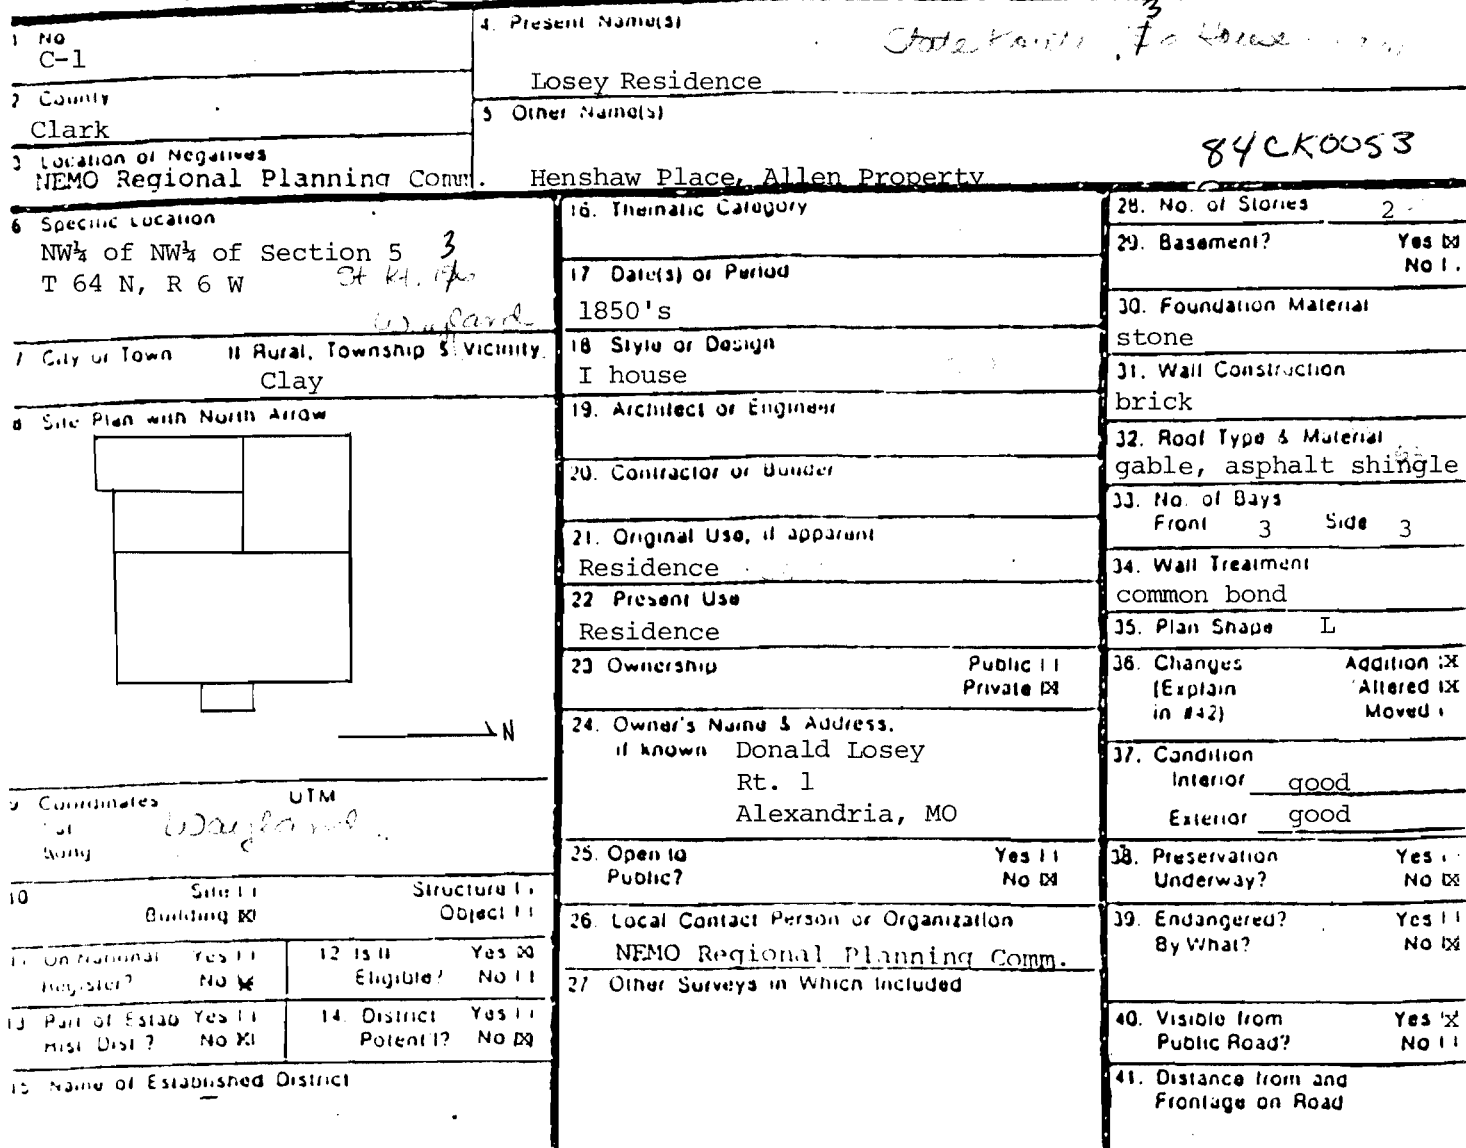 1 No
C-1
4. Present Name(s)
3
House
Losey Residence
2 County
Clark
5 Other Name(s)
84CK0053
3 Location of Negatives
NEMO Regional Planning Comm.
Henshaw Place, Allen Property
6 Specific Location
NW¼ of NW¼ of Section 5 3
T 64 N, R 6 W
Wayland
7 City or Town If Rural, Township & Vicinity
Clay
8 Site Plan with North Arrow
N
9 Coordinates UTM
Lat
Long
Wayland
10 Site [ ] Structure [ ]
Building [X] Object [ ]
11 On National Register? Yes [ ] No [X]
12 Is It Eligible? Yes [X] No [ ]
13 Part of Estab Hist Dist? Yes [ ] No [X]
14. District Potent'l? Yes [ ] No [X]
15 Name of Established District
16. Thematic Category
17 Date(s) or Period
1850's
18 Style or Design
I house
19. Architect or Engineer
20. Contractor or Builder
21. Original Use, if apparent
Residence
22 Present Use
Residence
23 Ownership Public [ ]
Private [X]
24. Owner's Name & Address,
if known Donald Losey
Rt. 1
Alexandria, MO
25. Open to Yes [ ]
Public? No [X]
26. Local Contact Person or Organization
NEMO Regional Planning Comm.
27 Other Surveys in Which Included
28. No. of Stories 2
29. Basement? Yes [X]
No [ ]
30. Foundation Material
stone
31. Wall Construction
brick
32. Roof Type & Material
gable, asphalt shingle
33. No. of Bays
Front 3 Side 3
34. Wall Treatment
common bond
35. Plan Shape L
36. Changes Addition [X]
(Explain Altered [X]
in #42) Moved [ ]
37. Condition
Interior good
Exterior good
38. Preservation Yes [ ]
Underway? No [X]
39. Endangered? Yes [ ]
By What? No [X]
40. Visible from Yes [X]
Public Road? No [ ]
41. Distance from and
Frontage on Road